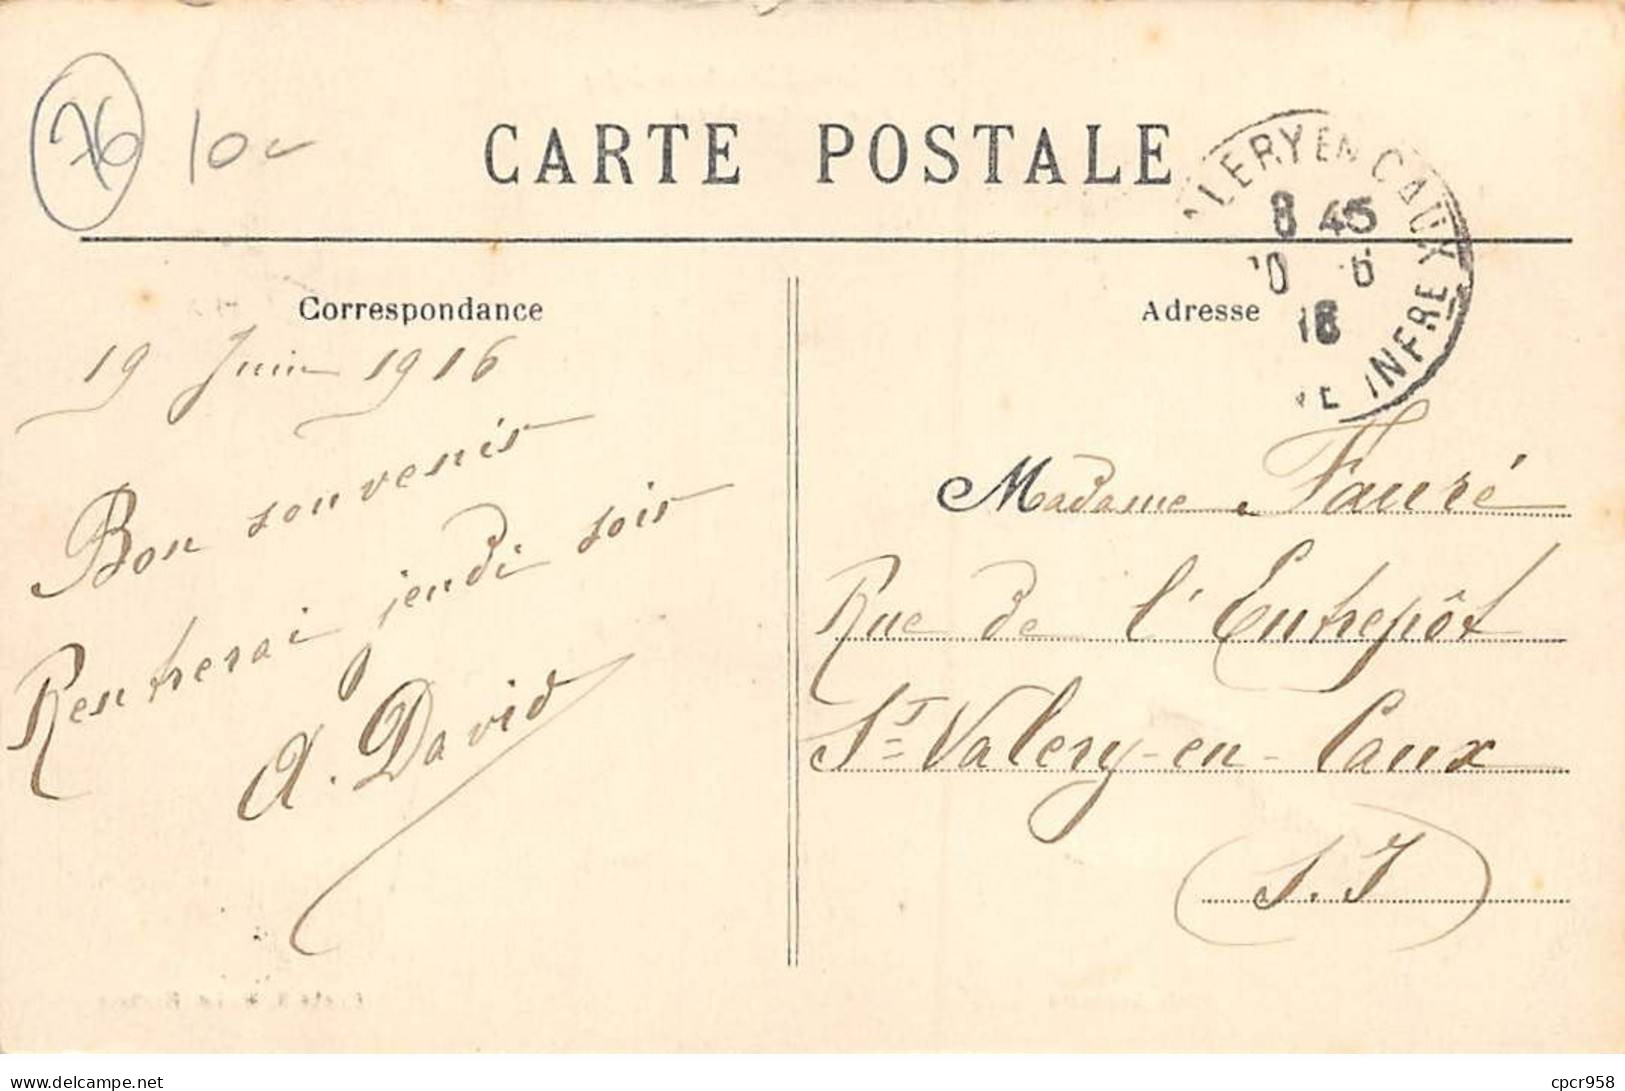 76 10
CARTE POSTALE
LERY EN CAUX
8 45
INFRE
Correspondance
19 Juin 1916
Bon souvenir
Rentrerai jeudi soir
A. David
Adresse
Madame Fauré
Rue de l'Entrepôt
St Valery-en-Caux
(S. I)
www.delcampe.net
cpcr958